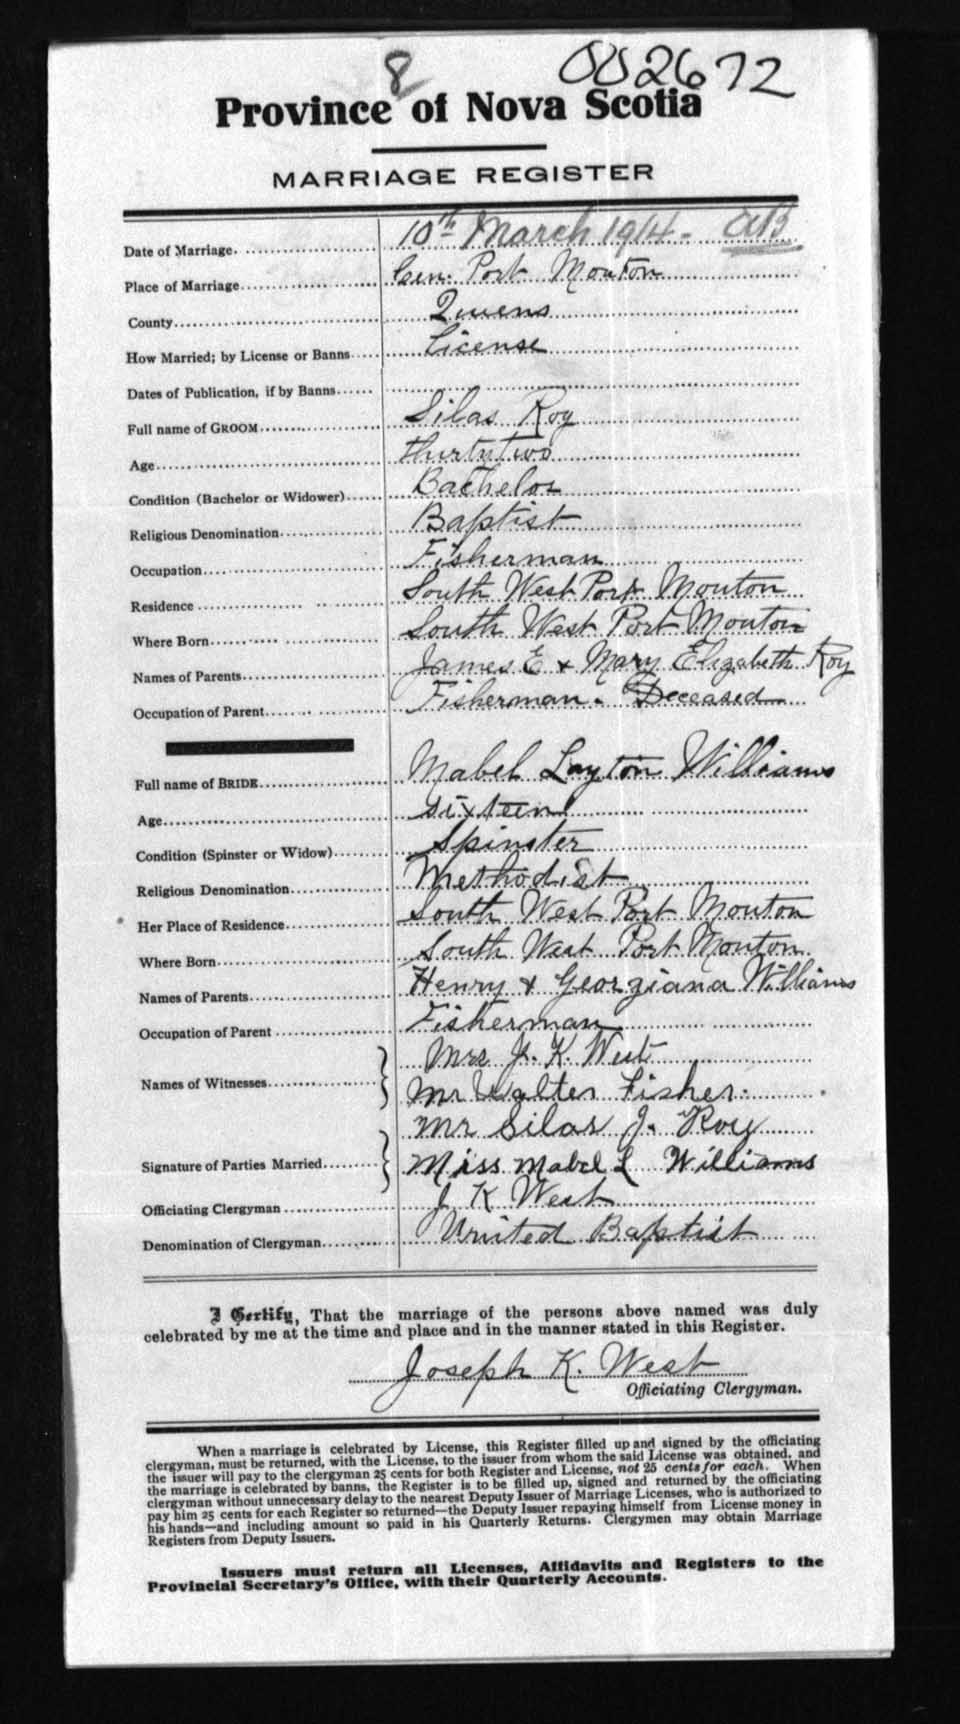 8
002672
Province of Nova Scotia
MARRIAGE REGISTER
Date of Marriage. 10th March 1914 - AB
Place of Marriage Cen. Port Mouton
County Queens
How Married; by License or Banns License
Dates of Publication, if by Banns
Full name of GROOM Silas Roy
Age thirty two
Condition (Bachelor or Widower) Bachelor
Religious Denomination Baptist
Occupation Fisherman
Residence South West Port Mouton
Where Born South West Port Mouton
Names of Parents James E & Mary Elizabeth Roy
Occupation of Parent Fisherman. Deceased
Full name of BRIDE Mabel Layton Williams
Age sixteen
Condition (Spinster or Widow) Spinster
Religious Denomination Methodist
Her Place of Residence South West Port Mouton
Where Born South West Port Mouton
Names of Parents Henry & Georgiana Williams
Occupation of Parent Fisherman
Names of Witnesses Mrs J. K. West
Mr Walter Fisher.
Signature of Parties Married Mr Silas J. Roy
Miss Mabel L Williams
Officiating Clergyman J K West
Denomination of Clergyman United Baptist
I Certify, That the marriage of the persons above named was duly
celebrated by me at the time and place and in the manner stated in this Register.
Joseph K. West
Officiating Clergyman.
When a marriage is celebrated by License, this Register filled up and signed by the officiating
clergyman, must be returned, with the License, to the issuer from whom the said License was obtained, and
the issuer will pay to the clergyman 25 cents for both Register and License, not 25 cents for each. When
the marriage is celebrated by banns, the Register is to be filled up, signed and returned by the officiating
clergyman without unnecessary delay to the nearest Deputy Issuer of Marriage Licenses, who is authorized to
pay him 25 cents for each Register so returned—the Deputy Issuer repaying himself from License money in
his hands—and including amount so paid in his Quarterly Returns. Clergymen may obtain Marriage
Registers from Deputy Issuers.
Issuers must return all Licenses, Affidavits and Registers to the
Provincial Secretary's Office, with their Quarterly Accounts.